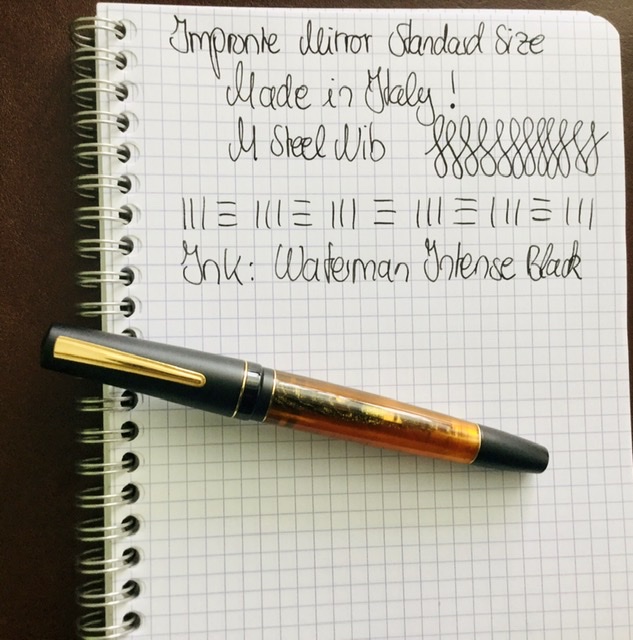 Impronte Mirror Standard Size
Made in Italy!
M Steel Nib
Ink: Waterman Intense Black